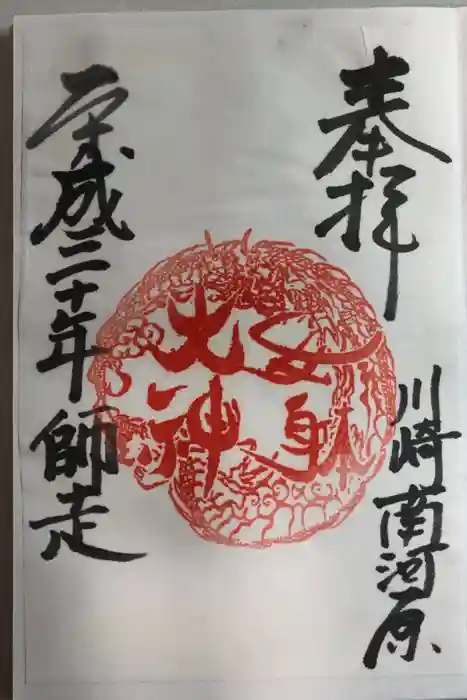 奉拝
川崎南河原
女躰
大神
平成三十年師走